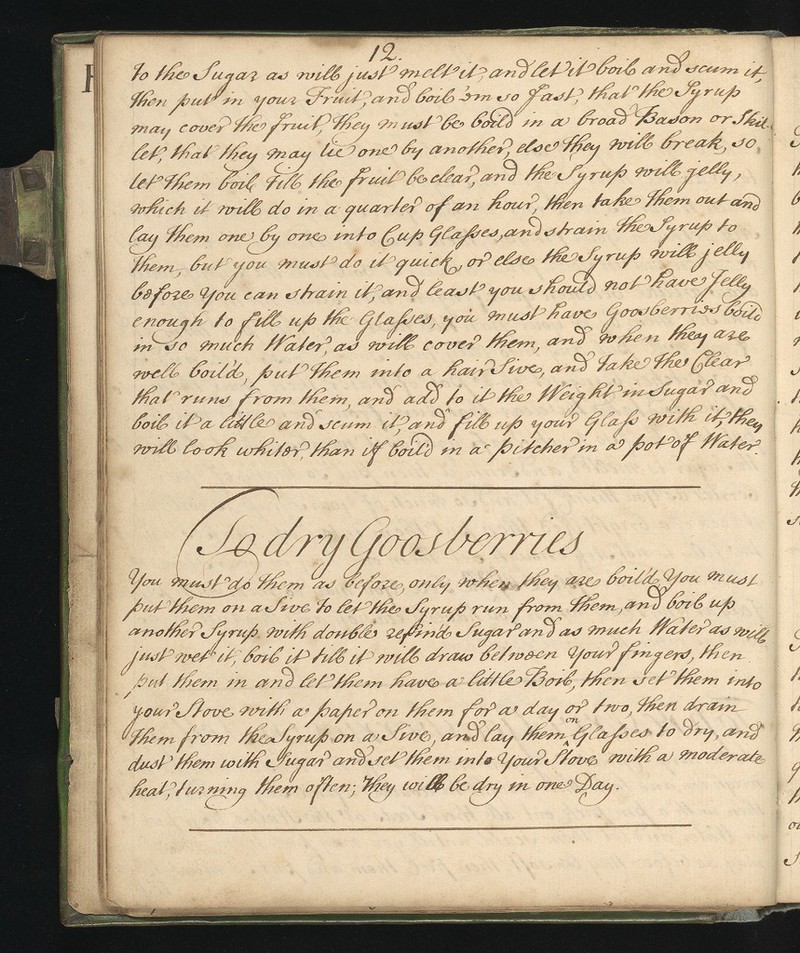 12.
to the Sugar as will just melt it, and let it boil and scum it,
then put in your Fruit, and boil 'em so fast, that the Syrup
may cover the fruit, they must be boild in a broad Bason or Skil
let, that they may lie one by another, else they will break, so
let them boil till the fruit be clear, and the Syrup will jelly,
which it will do in a quarter of an hour, then take them out and
lay them one by one into Cup Glasses, and strain the Syrup to
them, but you must do it quick, or else the Syrup will jelly
before You can strain it, and least you should not have Jelly
enough to fill up the Glasses, you must have Goosberries boild
in so much Water, as will cover them, and when they are
well boil'd, put them into a hair Sive, and take the Clear
that runs from them, and add to it the Weight in Sugar and
boil it a little and scum it, and fill up your Glass with it, they
will look whiter, than if boil'd in a Pitcher in a Pot of Water.
To dry Goosberries
You must do them as before, only when they are boil'd, You must
put them on a Sive to let the Syrup run from them, and boil up
another Syrup with double refin'd Sugar and as much Water as will
just wet it, boil it till it will draw between Your fingers, then
put them in and let them have a little Boil, then set them into
your Stove with a paper on them for a day or two, then drain
them from the Syrup on a Sive, and lay them on Glasses to dry, and
dust them with Sugar and set them into Your Stove with a moderate
heat, turning them often; they will be dry in one Day.